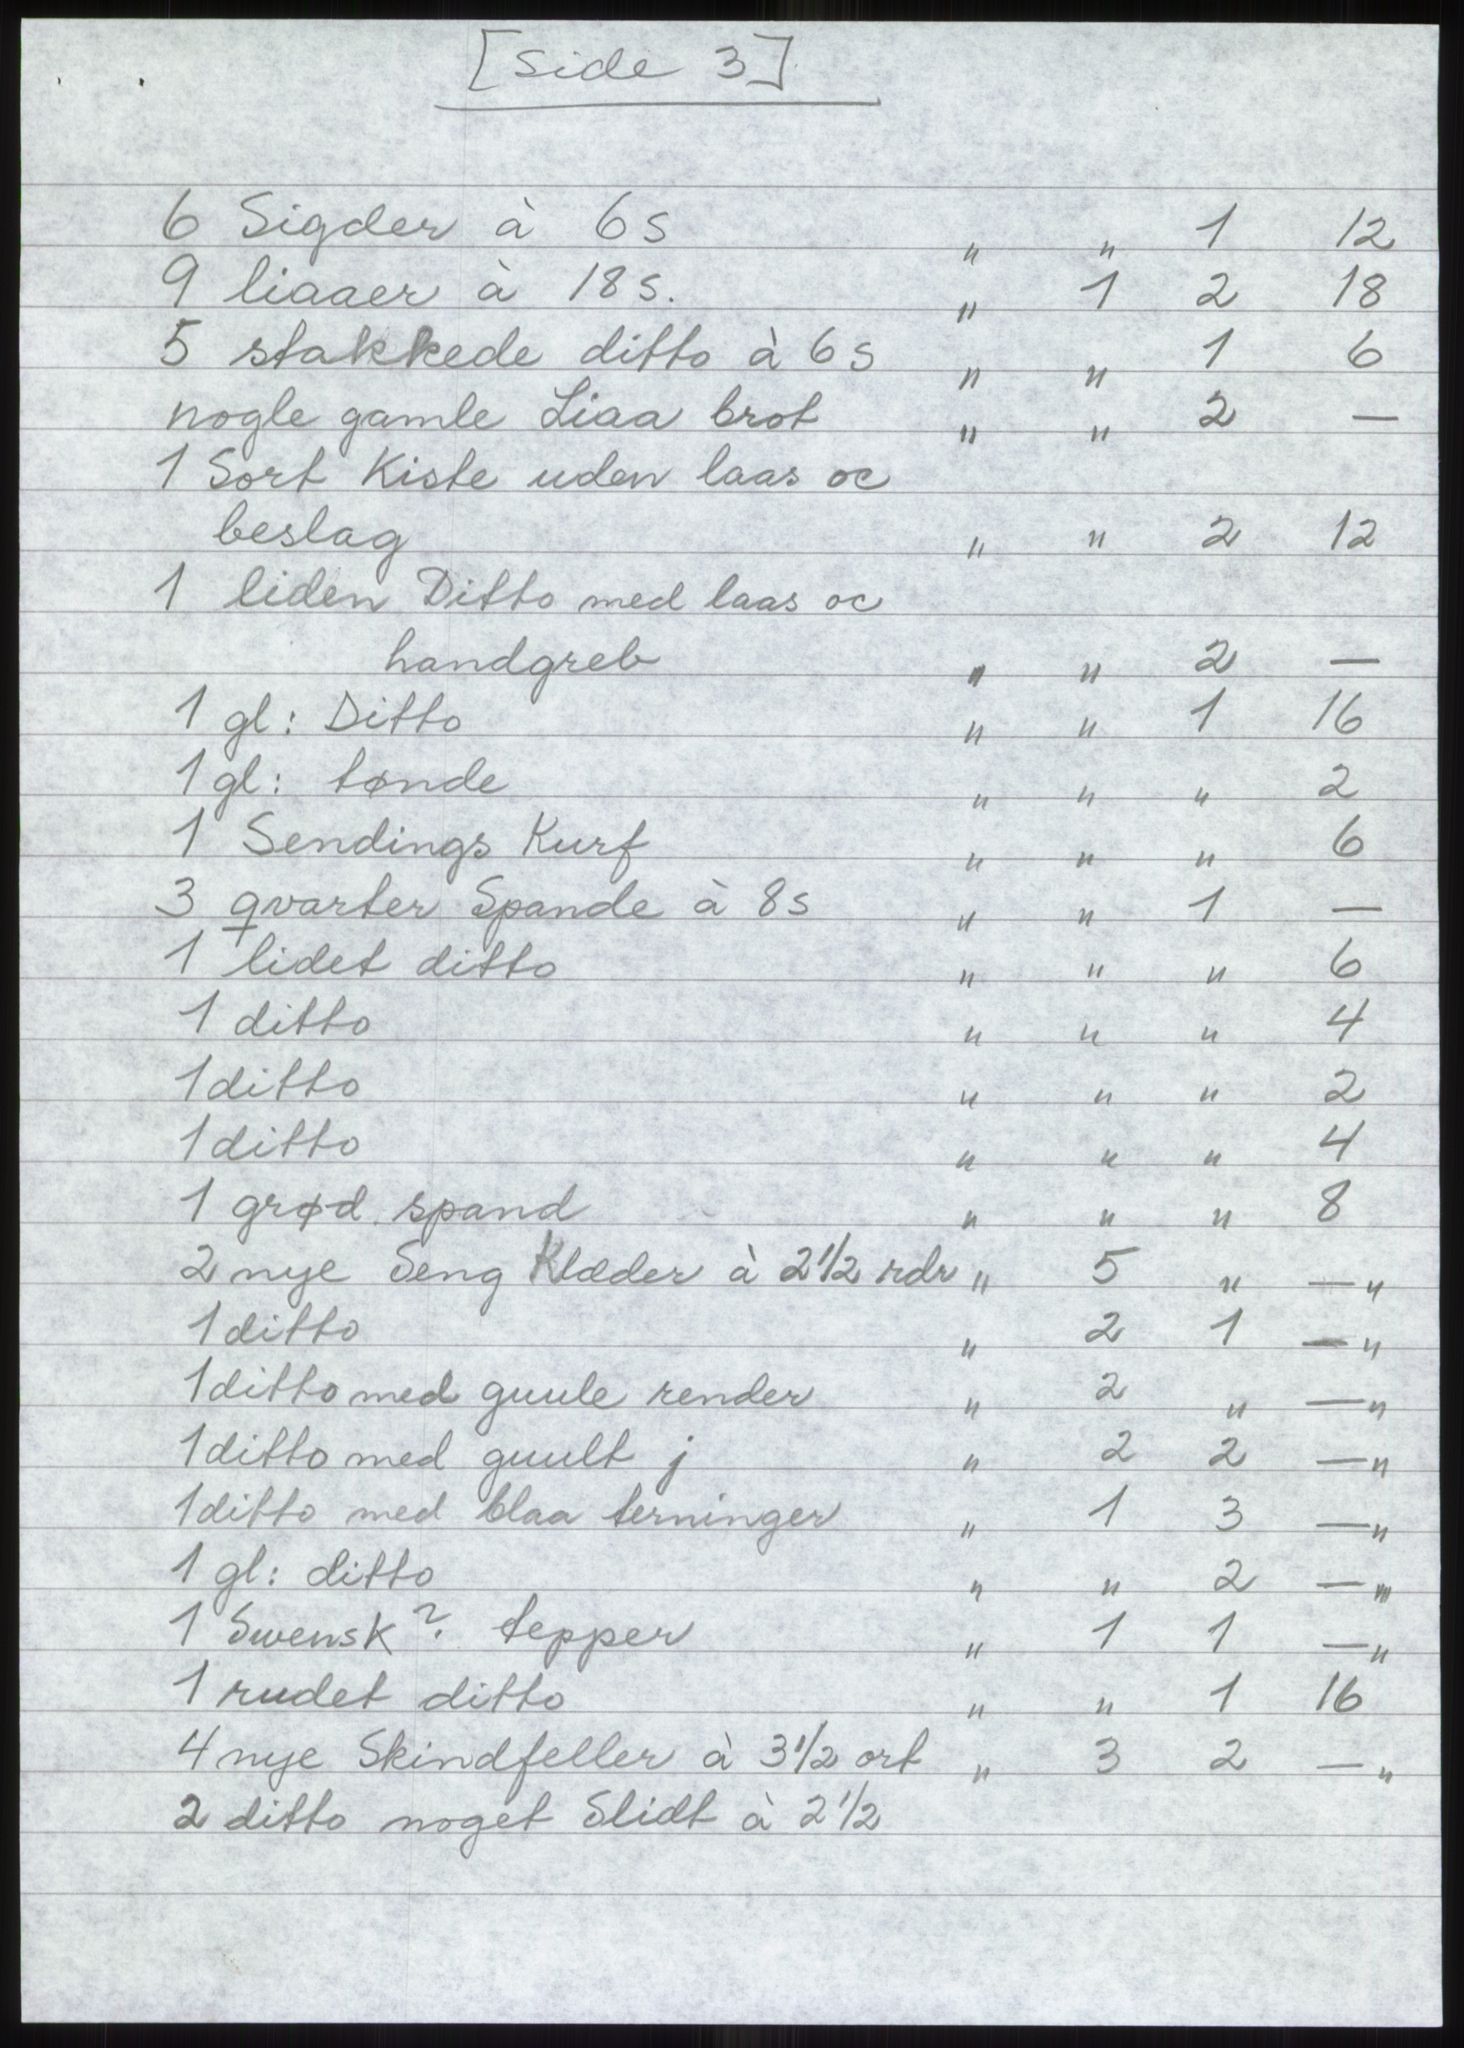 [Side 3]
6 Sigder à 6 s " " 1 12
9 liaaer à 18 s. " 1 2 18
5 stakkede ditto à 6 s " " 1 6
nogle gamle Liaa brot " " 2 —
1 Sort Kiste uden laas oc
beslag " " 2 12
1 liden Ditto med laas oc
handgreb " " 2 —
1 gl: Ditto " " 1 16
1 gl: tønde " " " 2
1 Sendings Kurf " " " 6
3 qvarter Spande à 8 s " " 1 —
1 lidet ditto " " " 6
1 ditto " " " 4
1 ditto " " " 2
1 ditto " " " 4
1 grød spand " " " 8
2 nye Seng Klæder à 2 1/2 rdr " 5 " — "
1 ditto " 2 1 — "
1 ditto med guule render " 2 " — "
1 ditto med guult j " 2 2 — "
1 ditto med blaa terninger " 1 3 — "
1 gl: ditto " " 2 — "
1 Swensk? tepper " 1 1 — "
1 rudet ditto " " 1 16
4 nye Skindfeller à 3 1/2 ort " 3 2 — "
2 ditto noget Slidt à 2 1/2